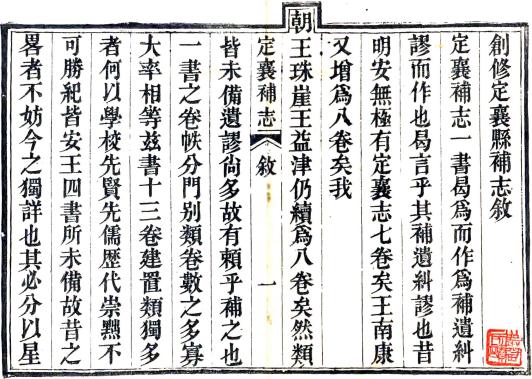 創修定襄縣補志敘
定襄補志一書曷爲而作爲補遺糾
謬而作也曷言乎其補遺糾謬也昔
明安無極有定襄志七卷矣王南康
又增爲八卷矣我
朝王珠崖王益津仍續爲八卷矣然類
定襄補志 敘 一
皆未備遺謬尙多故有賴乎補之也
一書之卷帙分門别類卷數之多寡
大率相等兹書十三卷建置類獨多
者何以學校先賢先儒歷代崇黜不
可勝紀皆安王四書所未備故昔之
畧者不妨今之獨詳也其必分以星